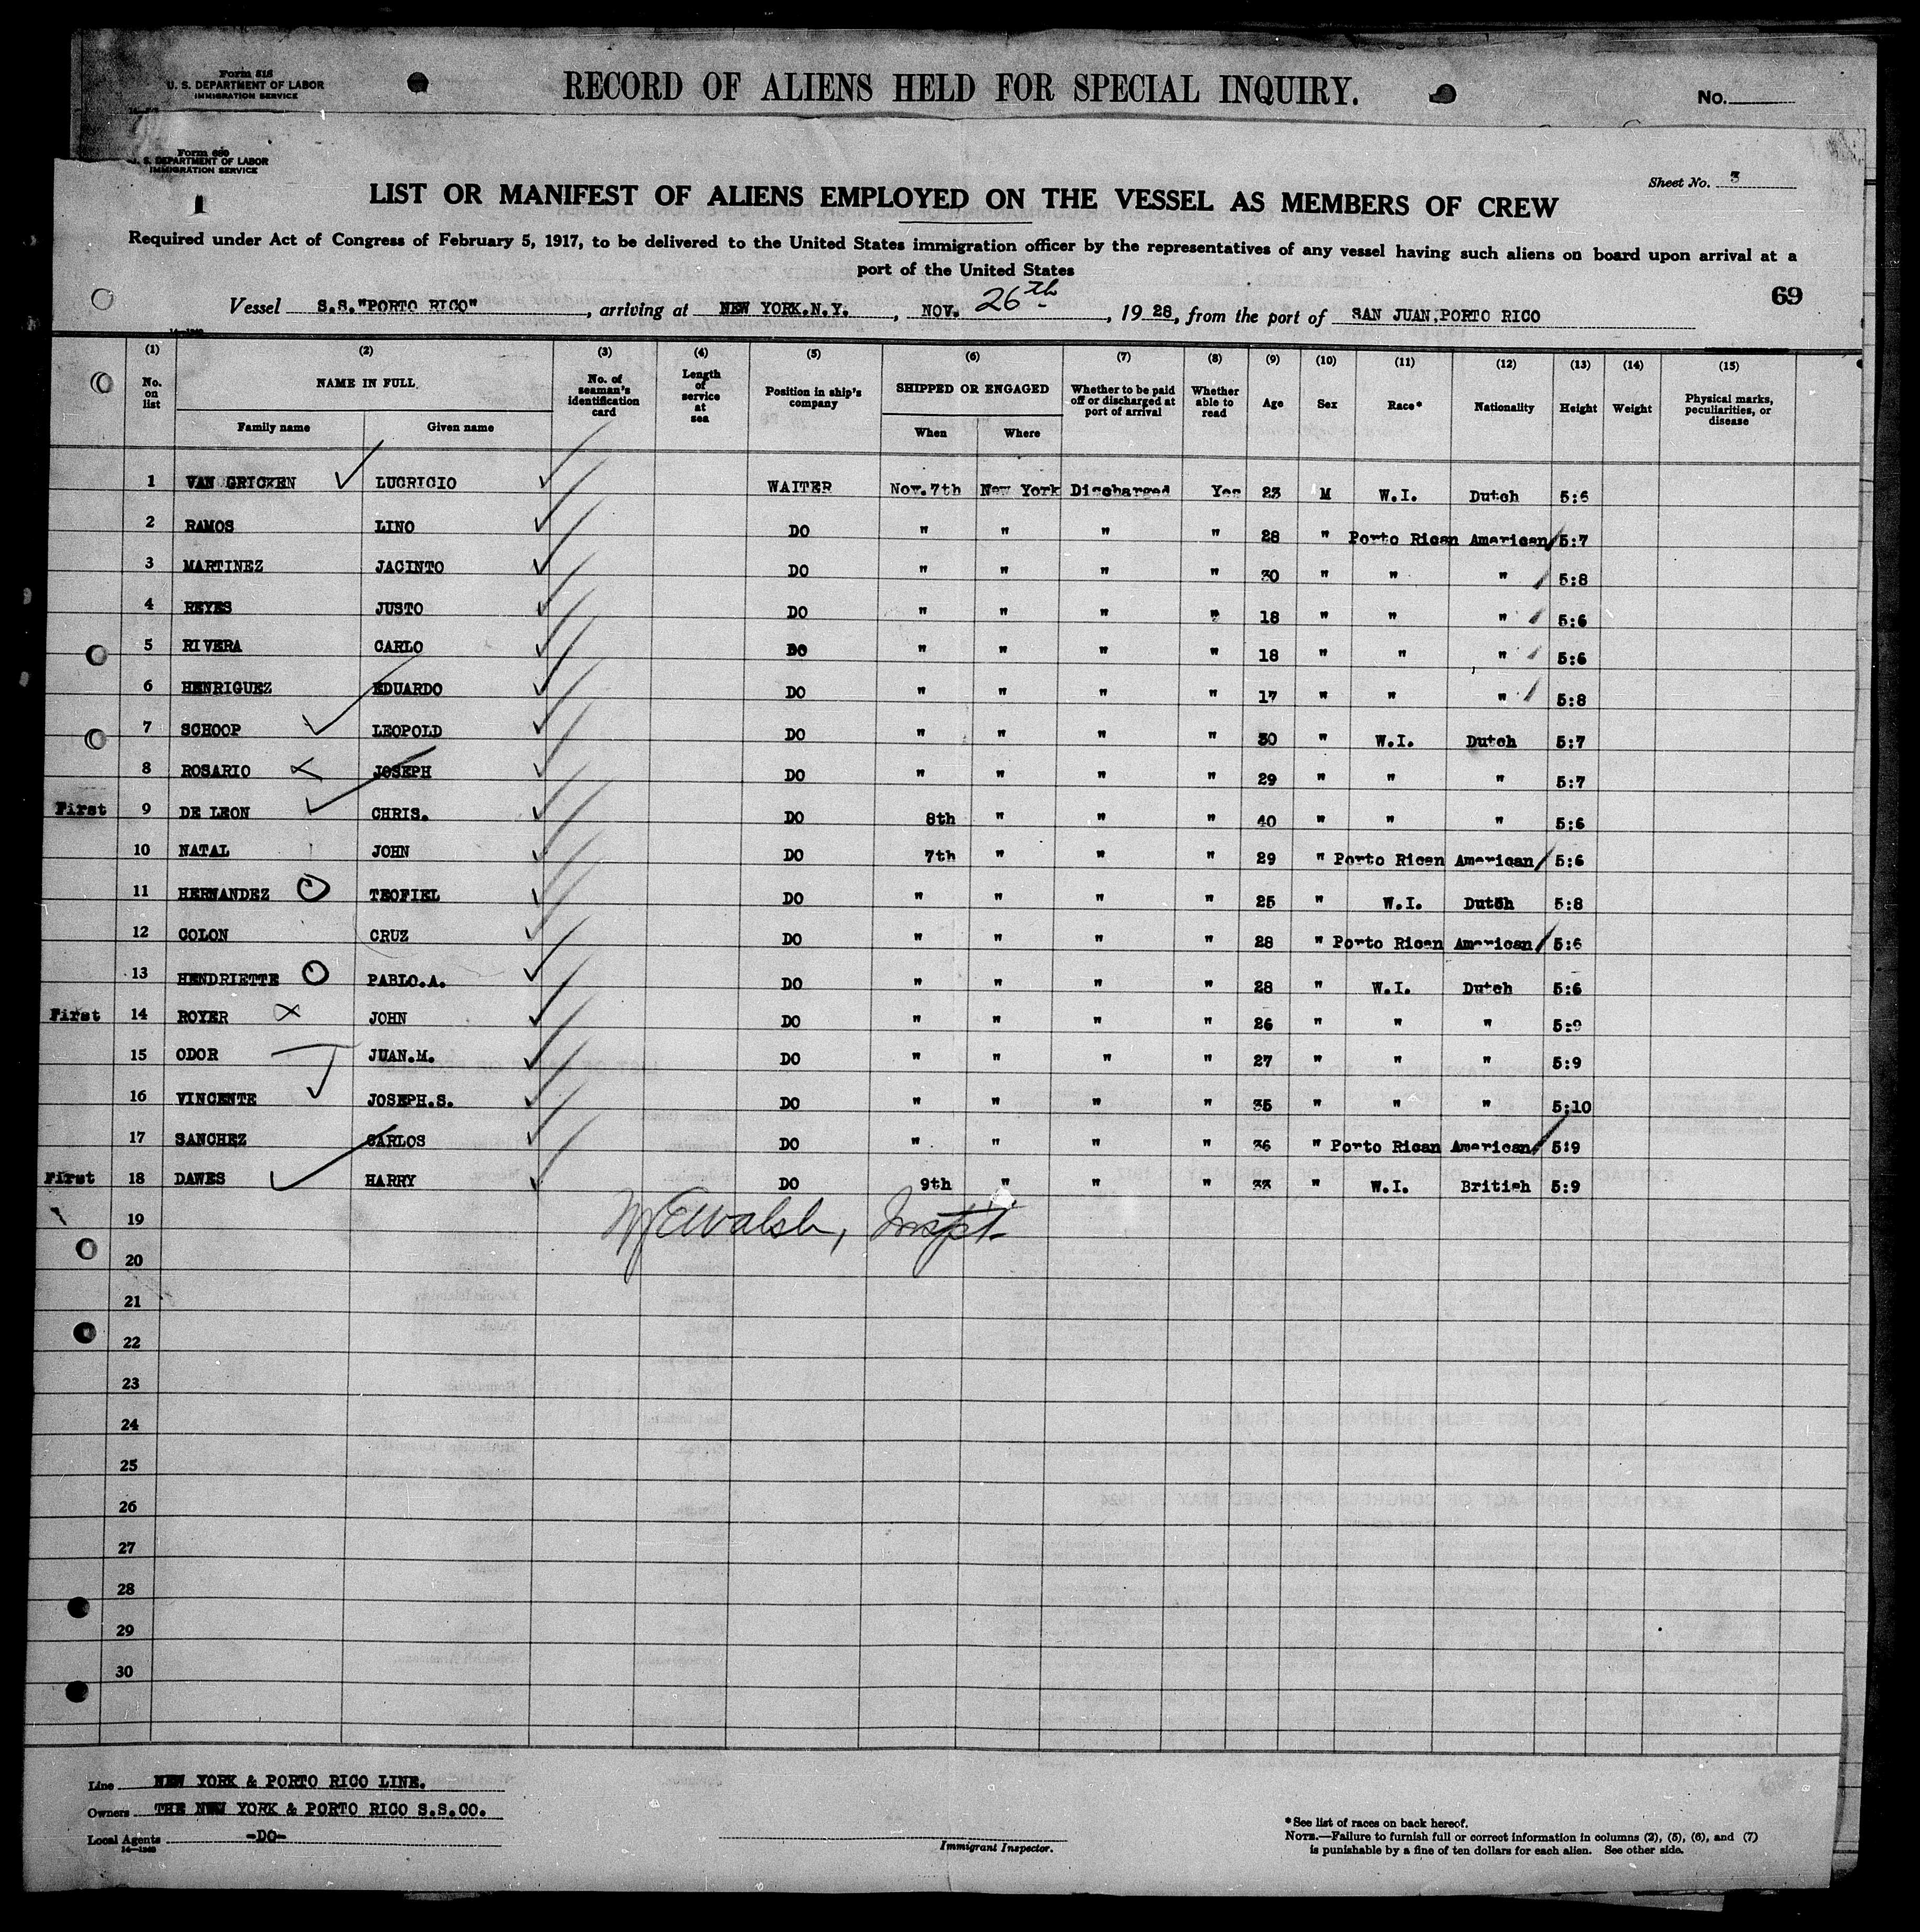 Form 518
U. S. DEPARTMENT OF LABOR
IMMIGRATION SERVICE
RECORD OF ALIENS HELD FOR SPECIAL INQUIRY.
No.
Form 680
U. S. DEPARTMENT OF LABOR
IMMIGRATION SERVICE
1
Sheet No. 3
LIST OR MANIFEST OF ALIENS EMPLOYED ON THE VESSEL AS MEMBERS OF CREW
Required under Act of Congress of February 5, 1917, to be delivered to the United States immigration officer by the representatives of any vessel having such aliens on board upon arrival at a
port of the United States
69
Vessel S.S."PORTO RICO", arriving at NEW YORK.N.Y., NOV. 26th, 1928, from the port of SAN JUAN,PORTO RICO
(1) (2) (3) (4) (5) (6) (7) (8) (9) (10) (11) (12) (13) (14) (15)
No. on list NAME IN FULL Family name Given name No. of seaman's identification card Length of service at sea Position in ship's company SHIPPED OR ENGAGED When Where Whether to be paid off or discharged at port of arrival Whether able to read Age Sex Race* Nationality Height Weight Physical marks, peculiarities, or disease
1 VAN GRICKEN LUCRICIO WAITER Nov.7th New York Discharged Yes 23 M W.I. Dutch 5:6
2 RAMOS LINO DO " " " " 28 " Porto Rican American 5:7
3 MARTINEZ JACINTO DO " " " " 30 " " " 5:8
4 REYES JUSTO DO " " " " 18 " " " 5:6
5 RIVERA CARLO DO " " " " 18 " " " 5:6
6 HENRIGUEZ EDUARDO DO " " " " 17 " " " 5:8
7 SCHOOP LEOPOLD DO " " " " 30 " W.I. Dutch 5:7
8 ROSARIO JOSEPH DO " " " " 29 " " " 5:7
First 9 DE LEON CHRIS. DO 8th " " " 40 " " " 5:6
10 NATAL JOHN DO 7th " " " 29 " Porto Rican American 5:6
11 HERNANDEZ TEOFIEL DO " " " " 25 " W.I. Dutch 5:8
12 COLON CRUZ DO " " " " 28 " Porto Rican American 5:6
13 HENDRIETTE PABLO.A. DO " " " " 28 " W.I. Dutch 5:6
First 14 ROYER JOHN DO " " " " 26 " " " 5:9
15 ODOR JUAN.M. DO " " " " 27 " " " 5:9
16 VINCENTE JOSEPH.S. DO " " " " 35 " " " 5:10
17 SANCHEZ CARLOS DO " " " " 36 " Porto Rican American 5:9
First 18 DAWES HARRY DO 9th " " " 33 " W.I. British 5:9
19 Walsh, Inspt.
20
21
22
23
24
25
26
27
28
29
30
Line NEW YORK & PORTO RICO LINE.
Owners THE NEW YORK & PORTO RICO S.S.CO.
Local Agents -DO-
14—1240
Immigrant Inspector.
*See list of races on back hereof.
NOTE.—Failure to furnish full or correct information in columns (2), (5), (6), and (7)
is punishable by a fine of ten dollars for each alien. See other side.